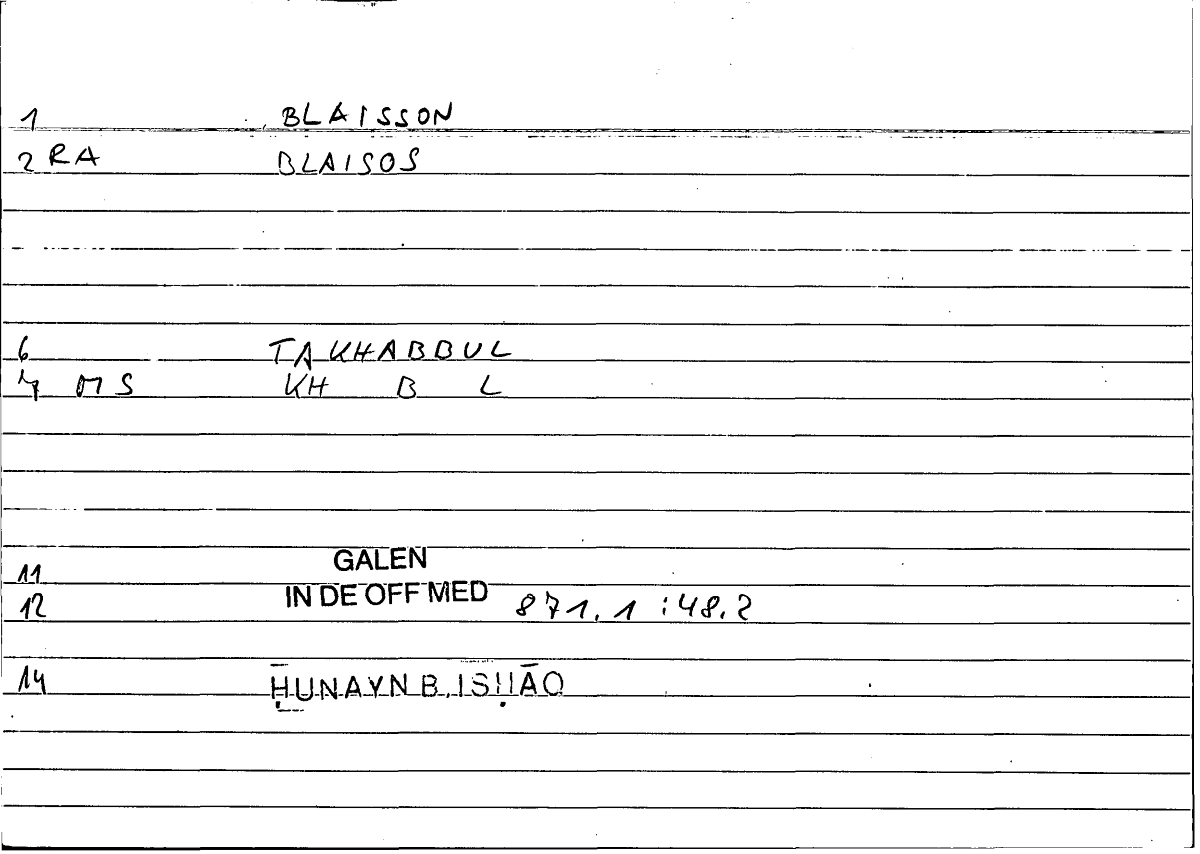 1 BLAISSON
2 RA BLAISOS
6 TAKHABBUL
7 MS KH B L
11 GALEN
12 IN DE OFF MED 871,1 :48,2
14 ḤUNAYN B. ISḤĀQ